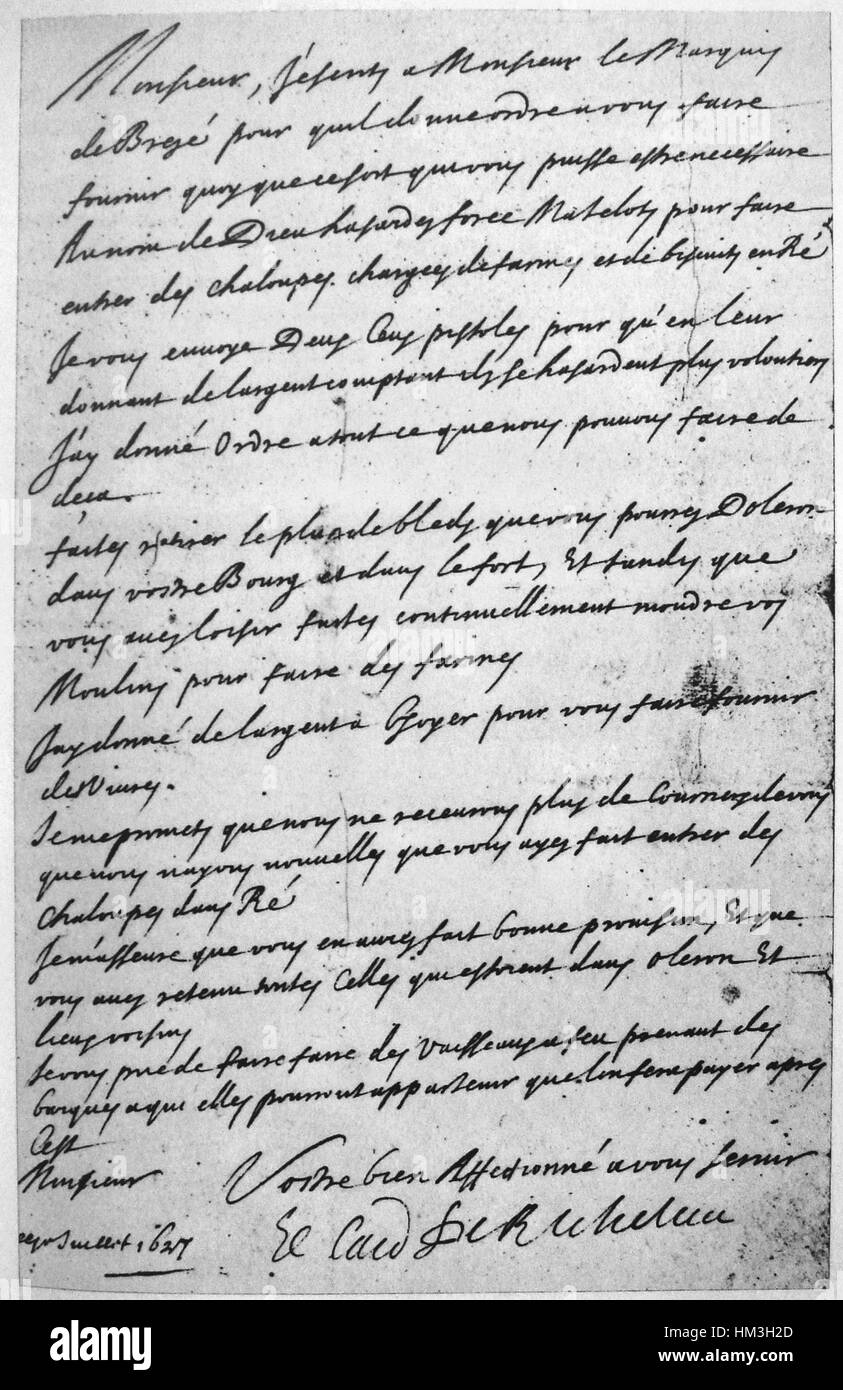 Monsieur, J'escrits a Monsieur le Marquis
de Brezé pour quil donne ordre a vous faire
fournir quoy que ce soit qui vous puisse estre necessaire
Au nom de Dieu hasardes force Matelots pour faire
entrer des chaloupes chargees de farines et de biscuits en Ré
Je vous envoye Deux Cens pistoles pour qu'en leur
donnant de largent comptant ils se hasardent plus volontiers
J'ay donné Ordre a tout ce que nous pouvons faire de
deca.
faites retirer le plus de bleds que vous pourres Doleron
dans vostre Bourg et dans le fort, Et tandis que
vous aves loisir faites continuellement moudre vos
Moulins pour faire des farines
Jay donné de largent a Goyer pour vous faire fournir
des Viures.
Je me promets que nous ne receurons plus de Courriers de vous
que nous nayons nouvelles que vous ayes fait entrer des
chaloupes dans Ré
Je m'asseure que vous en aures fait bonne provision, Et que
vous aves retenu toutes Celles qui estoient dans oleron Et
lieux voisins
Je vous prie de faire faire des Vaisseaux a feu prenant des
barques a qui elles pourront appartenir que lon fera payer apres
Cest
Monsieur
Vostre bien Affectionné a vous servir
Le Card De Richelieu
Juillet 1627
alamy
Image ID: HM3H2D
www.alamy.com